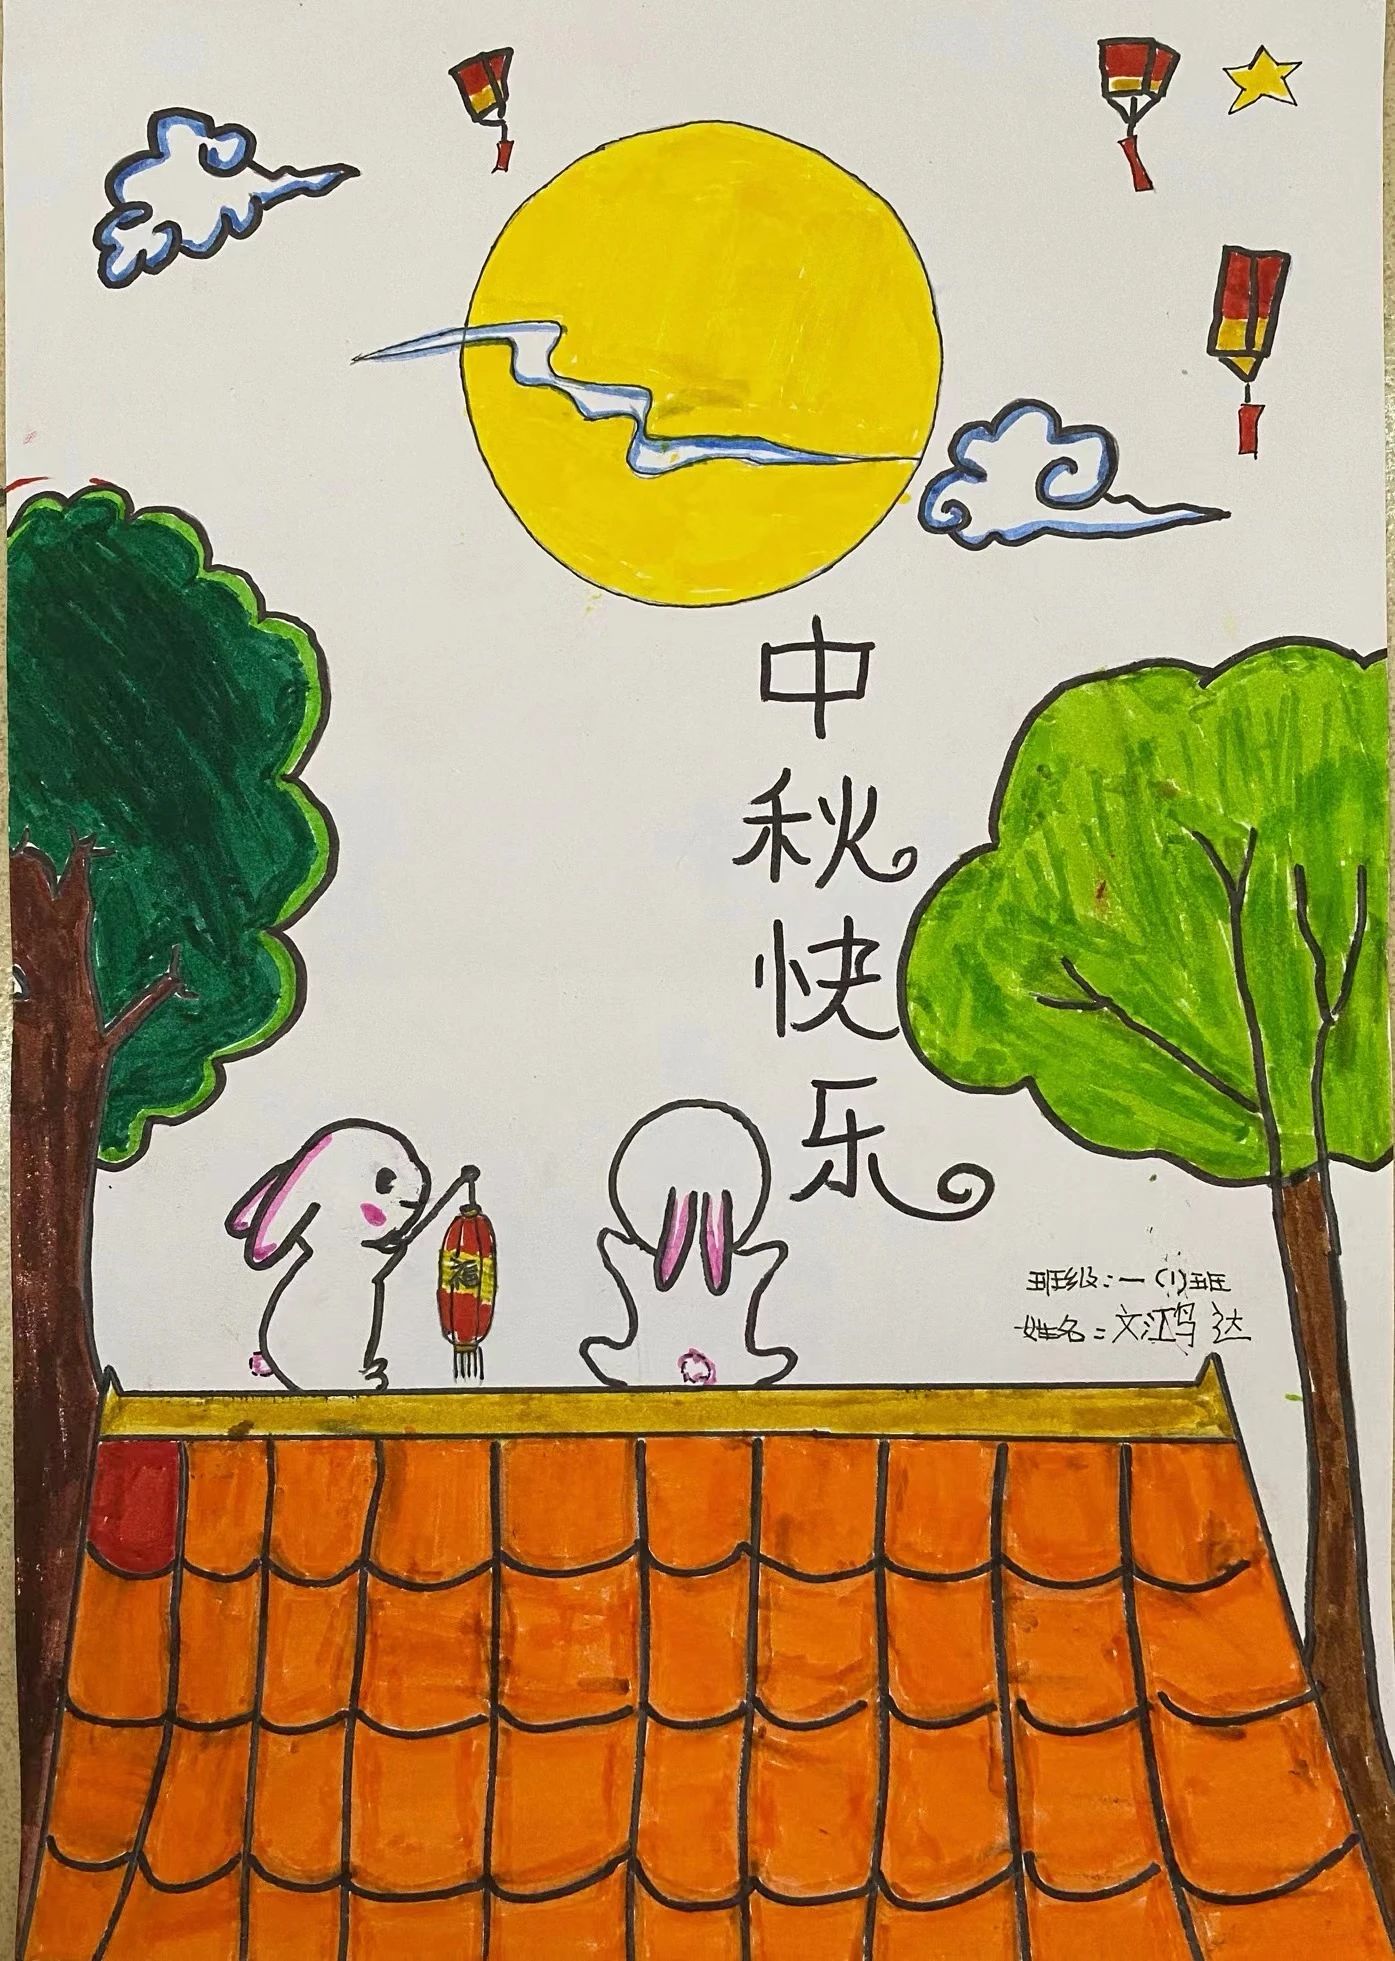 中秋快乐
福
班级：一（1）班
姓名：文江鸿达